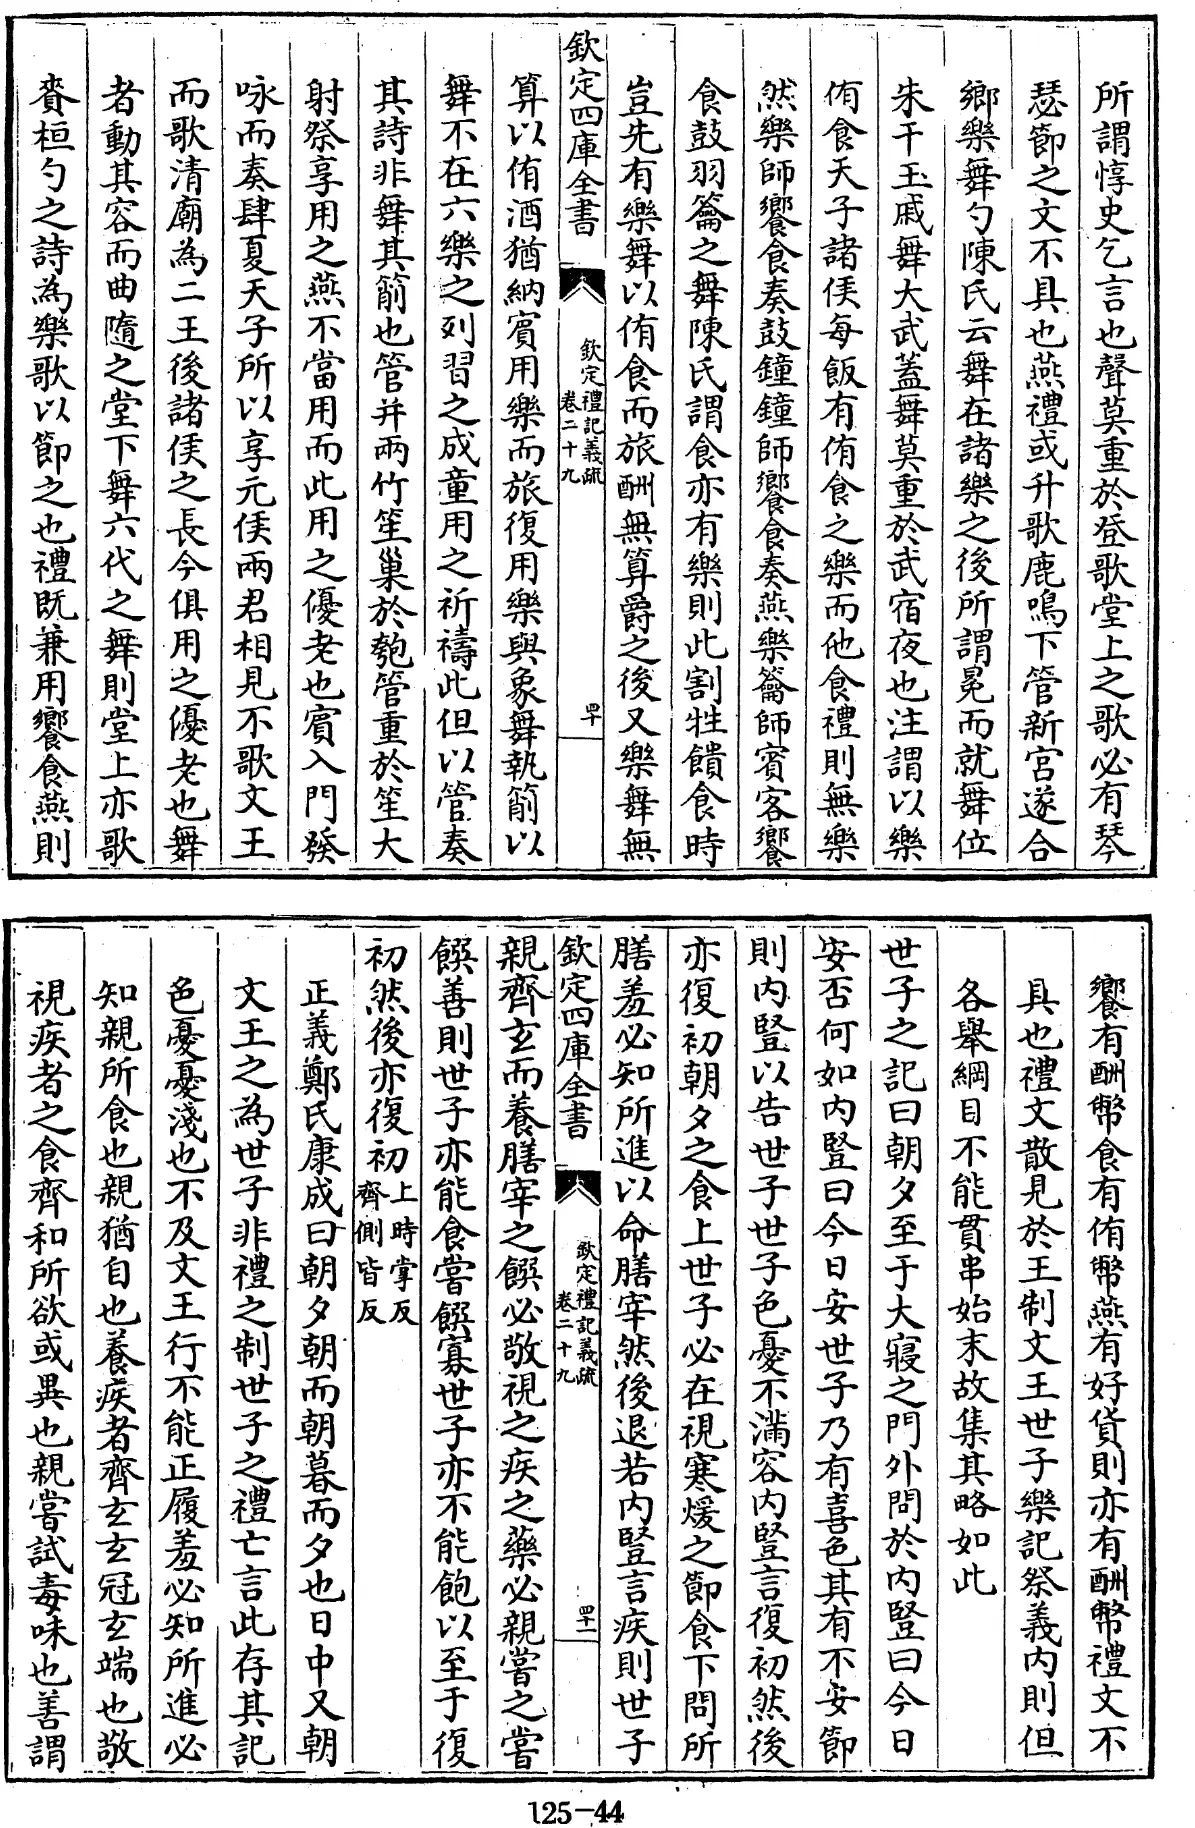 所謂惇史乞言也聲莫重於登歌堂上之歌必有琴
瑟節之文不具也燕禮或升歌鹿鳴下管新宮遂合
鄉樂舞勺陳氏云舞在諸樂之後所謂冕而就舞位
朱干玉戚舞大武蓋舞莫重於武宿夜也注謂以樂
侑食天子諸侯每飯有侑食之樂而他食禮則無樂
然樂師饗食奏鼓鐘鐘師饗食奏燕樂籥師賓客饗
食鼓羽籥之舞陳氏謂食亦有樂則此割牲饋食時
豈先有樂舞以侑食而旅酬無算爵之後又樂舞無
欽定四庫全書
欽定禮記義疏
卷二十九
四十
算以侑酒猶納賓用樂而旅復用樂與象舞執箾以
舞不在六樂之列習之成童用之祈禱此但以管奏
其詩非舞其箾也管并兩竹笙巢於匏管重於笙大
射祭享用之燕不當用而此用之優老也賓入門發
咏而奏肆夏天子所以享元侯兩君相見不歌文王
而歌清廟為二王後諸侯之長今俱用之優老也舞
者動其容而曲隨之堂下舞六代之舞則堂上亦歌
賚桓勺之詩為樂歌以節之也禮既兼用饗食燕則
饗有酬幣食有侑幣燕有好貨則亦有酬幣禮文不
具也禮文散見於王制文王世子樂記祭義內則但
各舉綱目不能貫串始末故集其略如此
世子之記曰朝夕至于大寢之門外問於內豎曰今日
安否何如內豎曰今日安世子乃有喜色其有不安節
則內豎以告世子世子色憂不滿容內豎言復初然後
亦復初朝夕之食上世子必在視寒煖之節食下問所
膳羞必知所進以命膳宰然後退若內豎言疾則世子
欽定四庫全書
欽定禮記義疏
卷二十九
四十一
親齊玄而養膳宰之饌必敬視之疾之藥必親嘗之嘗
饌善則世子亦能食嘗饌寡世子亦不能飽以至于復
初然後亦復初上時掌反
齊側皆反
正義鄭氏康成曰朝夕朝而朝暮而夕也日中又朝
文王之為世子非禮之制世子之禮亡言此存其記
色憂憂淺也不及文王行不能正履羞必知所進必
知親所食也親猶自也養疾者齊玄玄冠玄端也敬
視疾者之食齊和所欲或異也親嘗試毒味也善謂
125-44